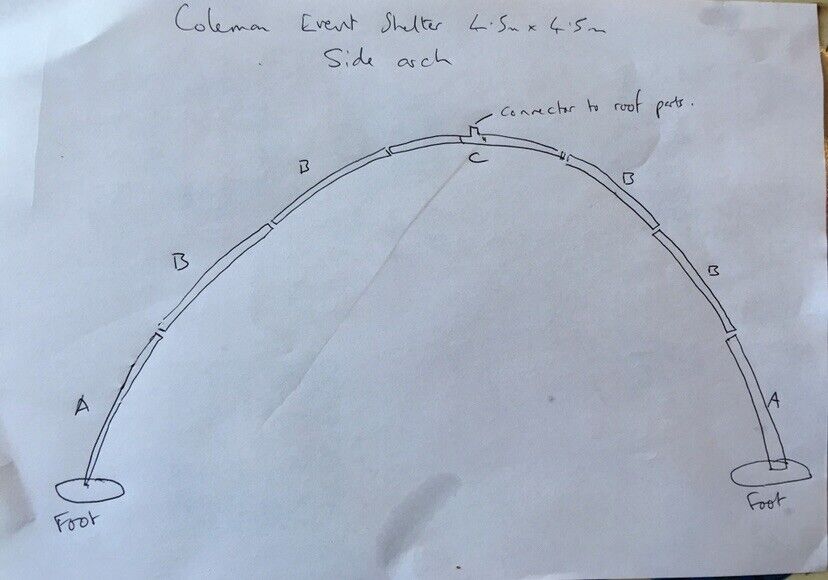 Coleman Event Shelter 4.5m x 4.5m
Side arch
connector to roof parts.
B
C
B
B
B
A
A
Foot
Foot